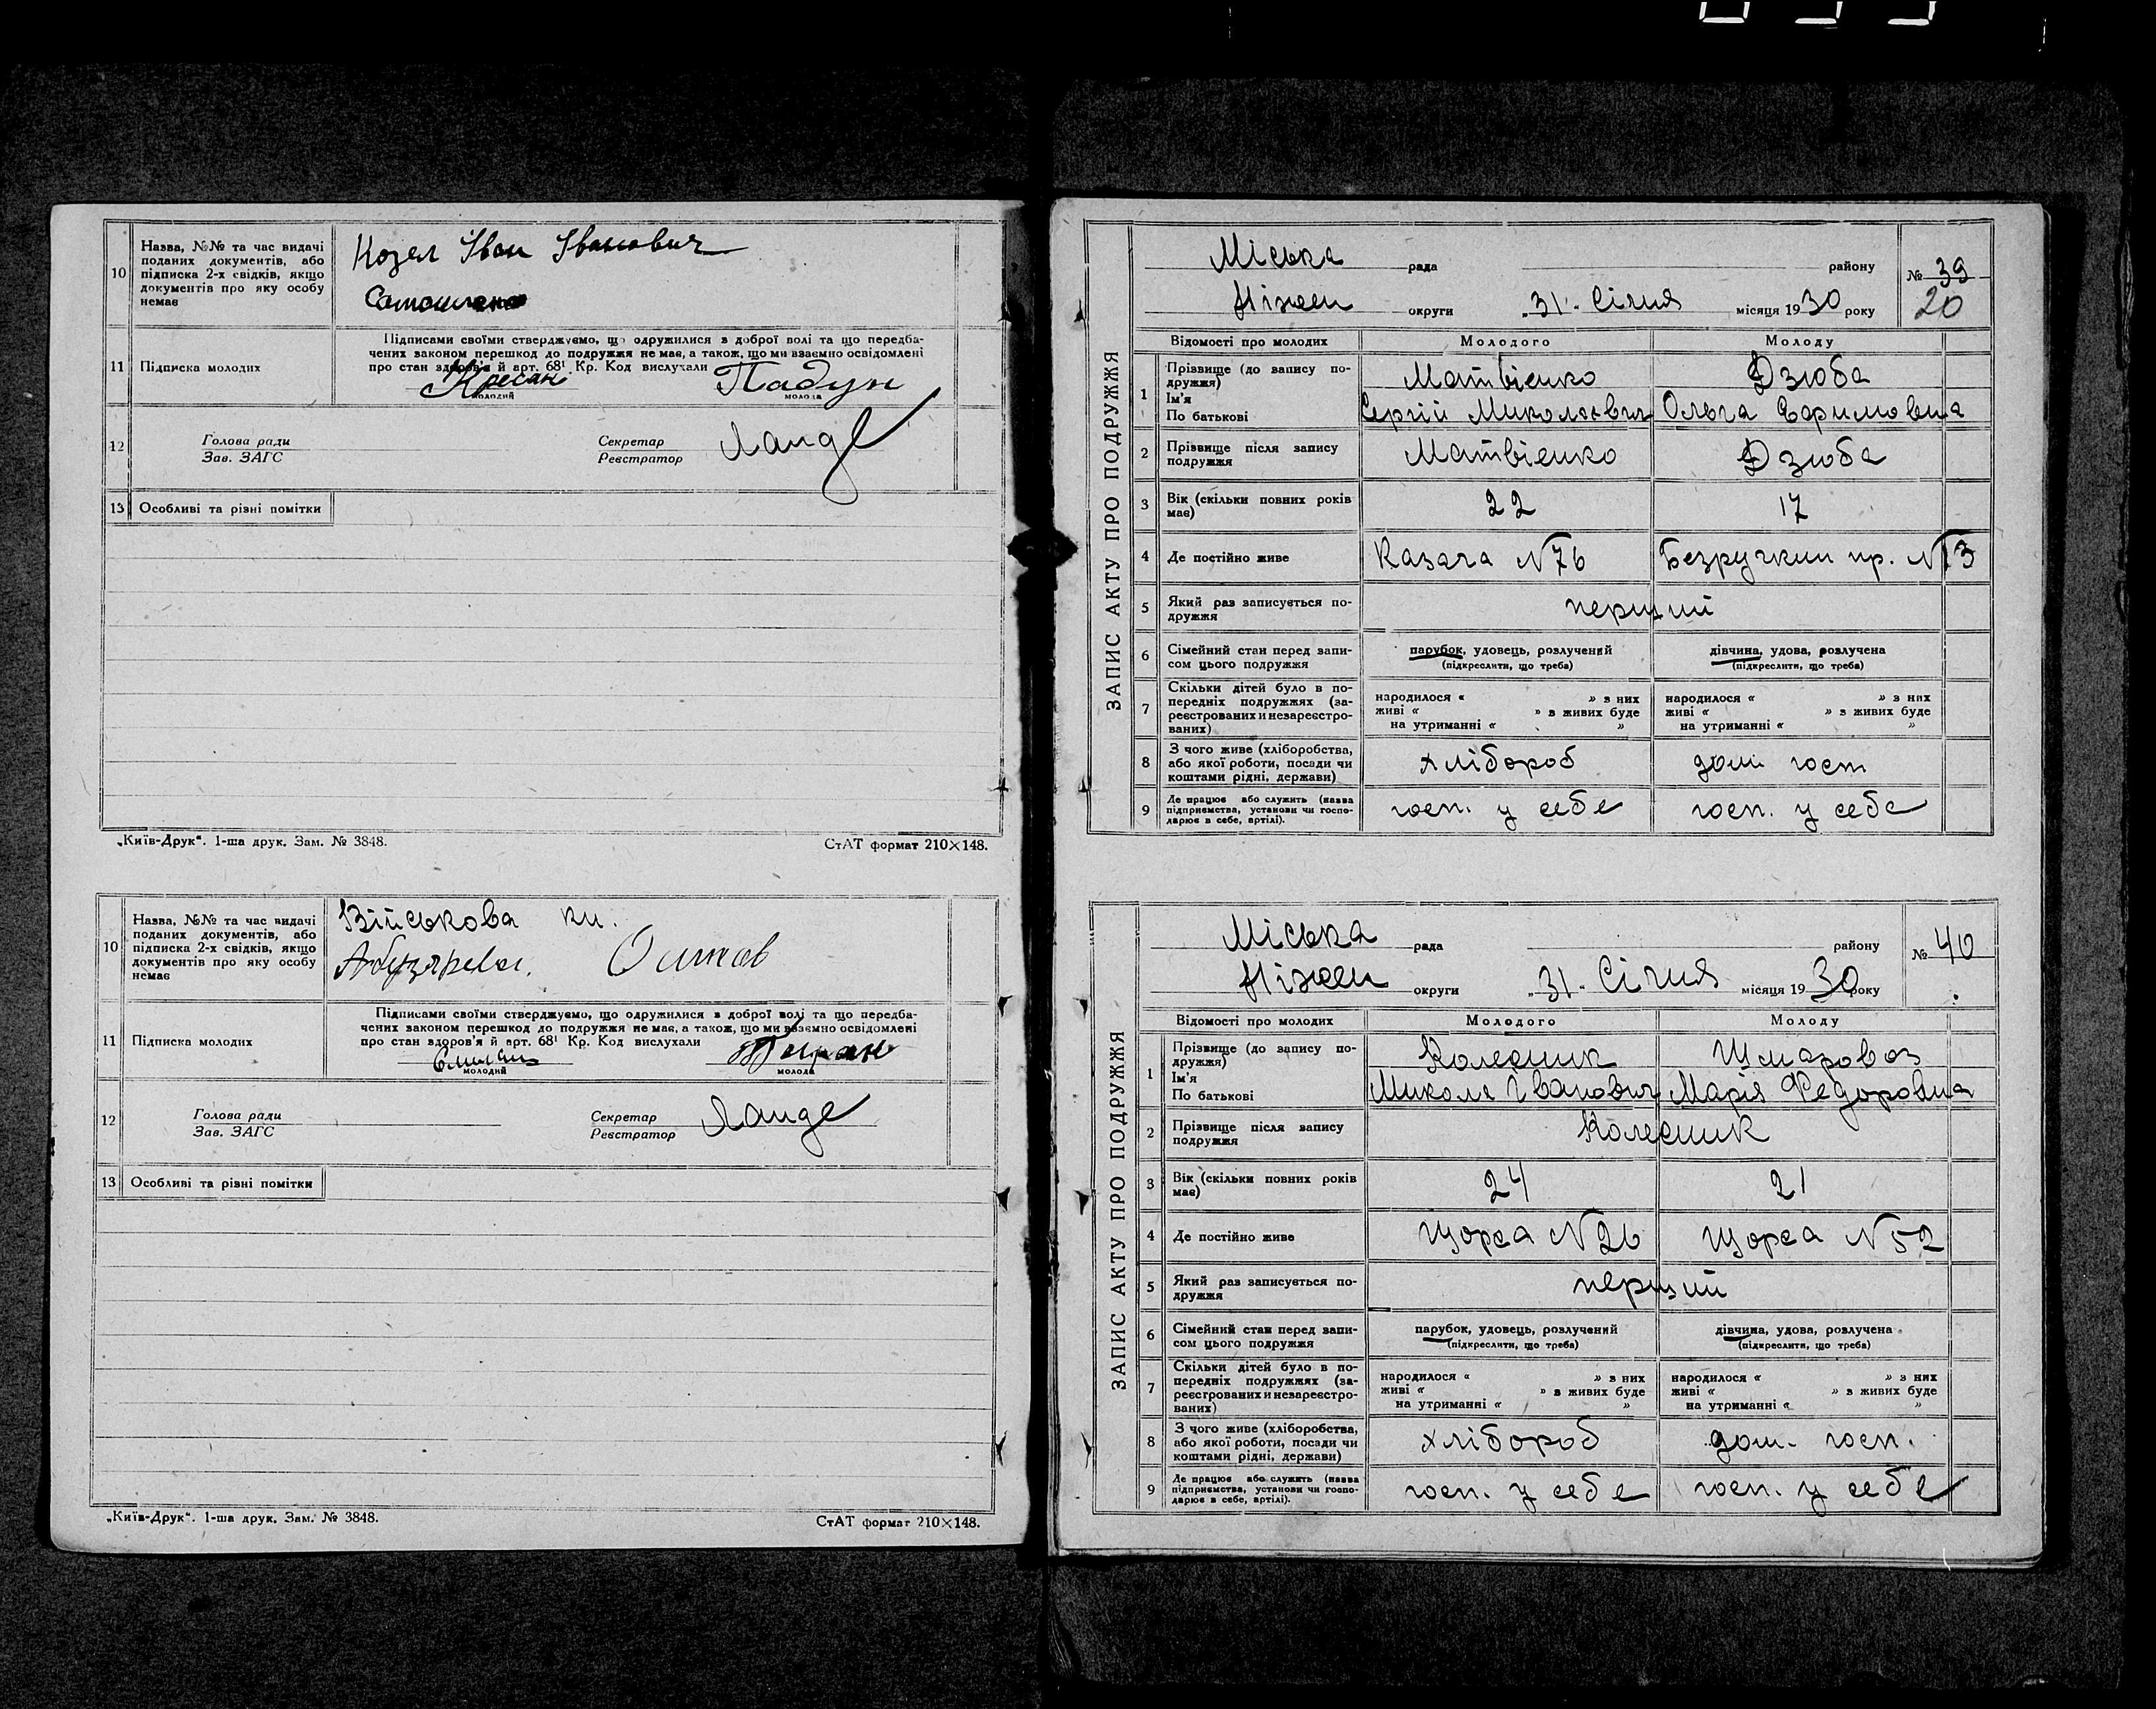 10 Назва, №№ та час видачі
поданих документів, або
підписка 2-х свідків, якщо
документів про яку особу
немає
Козел Іван Іванович
Підписами своїми стверджуємо, що одружилися з доброї волі та що передба-
чених законом перешкод до подружжя не має, а також, що ми взаємно освідомлені
про стан здоров'я й арт. 68¹ Кр. Код вислухали
11 Підписка молодих
Кресан Падун
молодий молода
12 Голова ради
Зав. ЗАГС
Секретар
Реєстратор
Ланде
13 Особливі та різні помітки
„Київ-Друк“. 1-ша друк. Зам. № 3848. СтАТ формат 210×148.
10 Назва, №№ та час видачі
поданих документів, або
підписка 2-х свідків, якщо
документів про яку особу
немає
Військова кн.
Підписами своїми стверджуємо, що одружилися з доброї волі та що передба-
чених законом перешкод до подружжя не має, а також, що ми взаємно освідомлені
про стан здоров'я й арт. 68¹ Кр. Код вислухали
11 Підписка молодих
молодий молода
12 Голова ради
Зав. ЗАГС
Секретар
Реєстратор
Ланде
13 Особливі та різні помітки
„Київ-Друк“. 1-ша друк. Зам. № 3848. СтАТ формат 210×148.
ЗАПИС АКТУ ПРО ПОДРУЖЖЯ
Міська рада району № 39
Ніжен округи „31“ Січня місяця 1930 року 20
Відомості про молодих Молодого Молоду
1 Прізвище (до запису по-
дружжя)
Ім'я
По батькові
Матвієнко Дзюба
Сергій Миколаєвич Ольга Єфримовна
2 Прізвище після запису
подружжя
Матвієнко Дзюба
3 Вік (скільки повних років
має)
22 17
4 Де постійно живе Казача N 76 Безручкин пр. N 13
5 Який раз записується по-
дружжя
перший
6 Сімейний стан перед запи-
сом цього подружжя
парубок, удовець, розлучений дівчина, удова, розлучена
(підкреслити, що треба) (підкреслити, що треба)
7 Скільки дітей було в по-
передніх подружжях (за-
реєстрованих и незареєстро-
ваних)
народилося « » з них народилося « » з них
живі « » з живих буде живі « » з живих буде
на утриманні « » на утриманні « »
8 З чого живе (хліборобства,
або якої роботи, посади чи
коштами рідні, держави)
хлібороб дом госп
9 Де працює або служить (назва
підприємства, установи чи госпо-
дарює в себе, артілі).
госп. у себе госп. у себе
ЗАПИС АКТУ ПРО ПОДРУЖЖЯ
Міська рада району № 40
Ніжен округи „31“ Січня місяця 1930 року
Відомості про молодих Молодого Молоду
1 Прізвище (до запису по-
дружжя)
Ім'я
По батькові
Колесник Шмаровоз
Микола Іванович Марія Федоровна
2 Прізвище після запису
подружжя
Колесник
3 Вік (скільки повних років
має)
24 21
4 Де постійно живе Щорса N 26 Щорса N 52
5 Який раз записується по-
дружжя
перший
6 Сімейний стан перед запи-
сом цього подружжя
парубок, удовець, розлучений дівчина, удова, розлучена
(підкреслити, що треба) (підкреслити, що треба)
7 Скільки дітей було в по-
передніх подружжях (за-
реєстрованих и незареєстро-
ваних)
народилося « » з них народилося « » з них
живі « » з живих буде живі « » з живих буде
на утриманні « » на утриманні « »
8 З чого живе (хліборобства,
або якої роботи, посади чи
коштами рідні, держави)
хлібороб дом. госп.
9 Де працює або служить (назва
підприємства, установи чи госпо-
дарює в себе, артілі).
госп. у себе госп. у себе